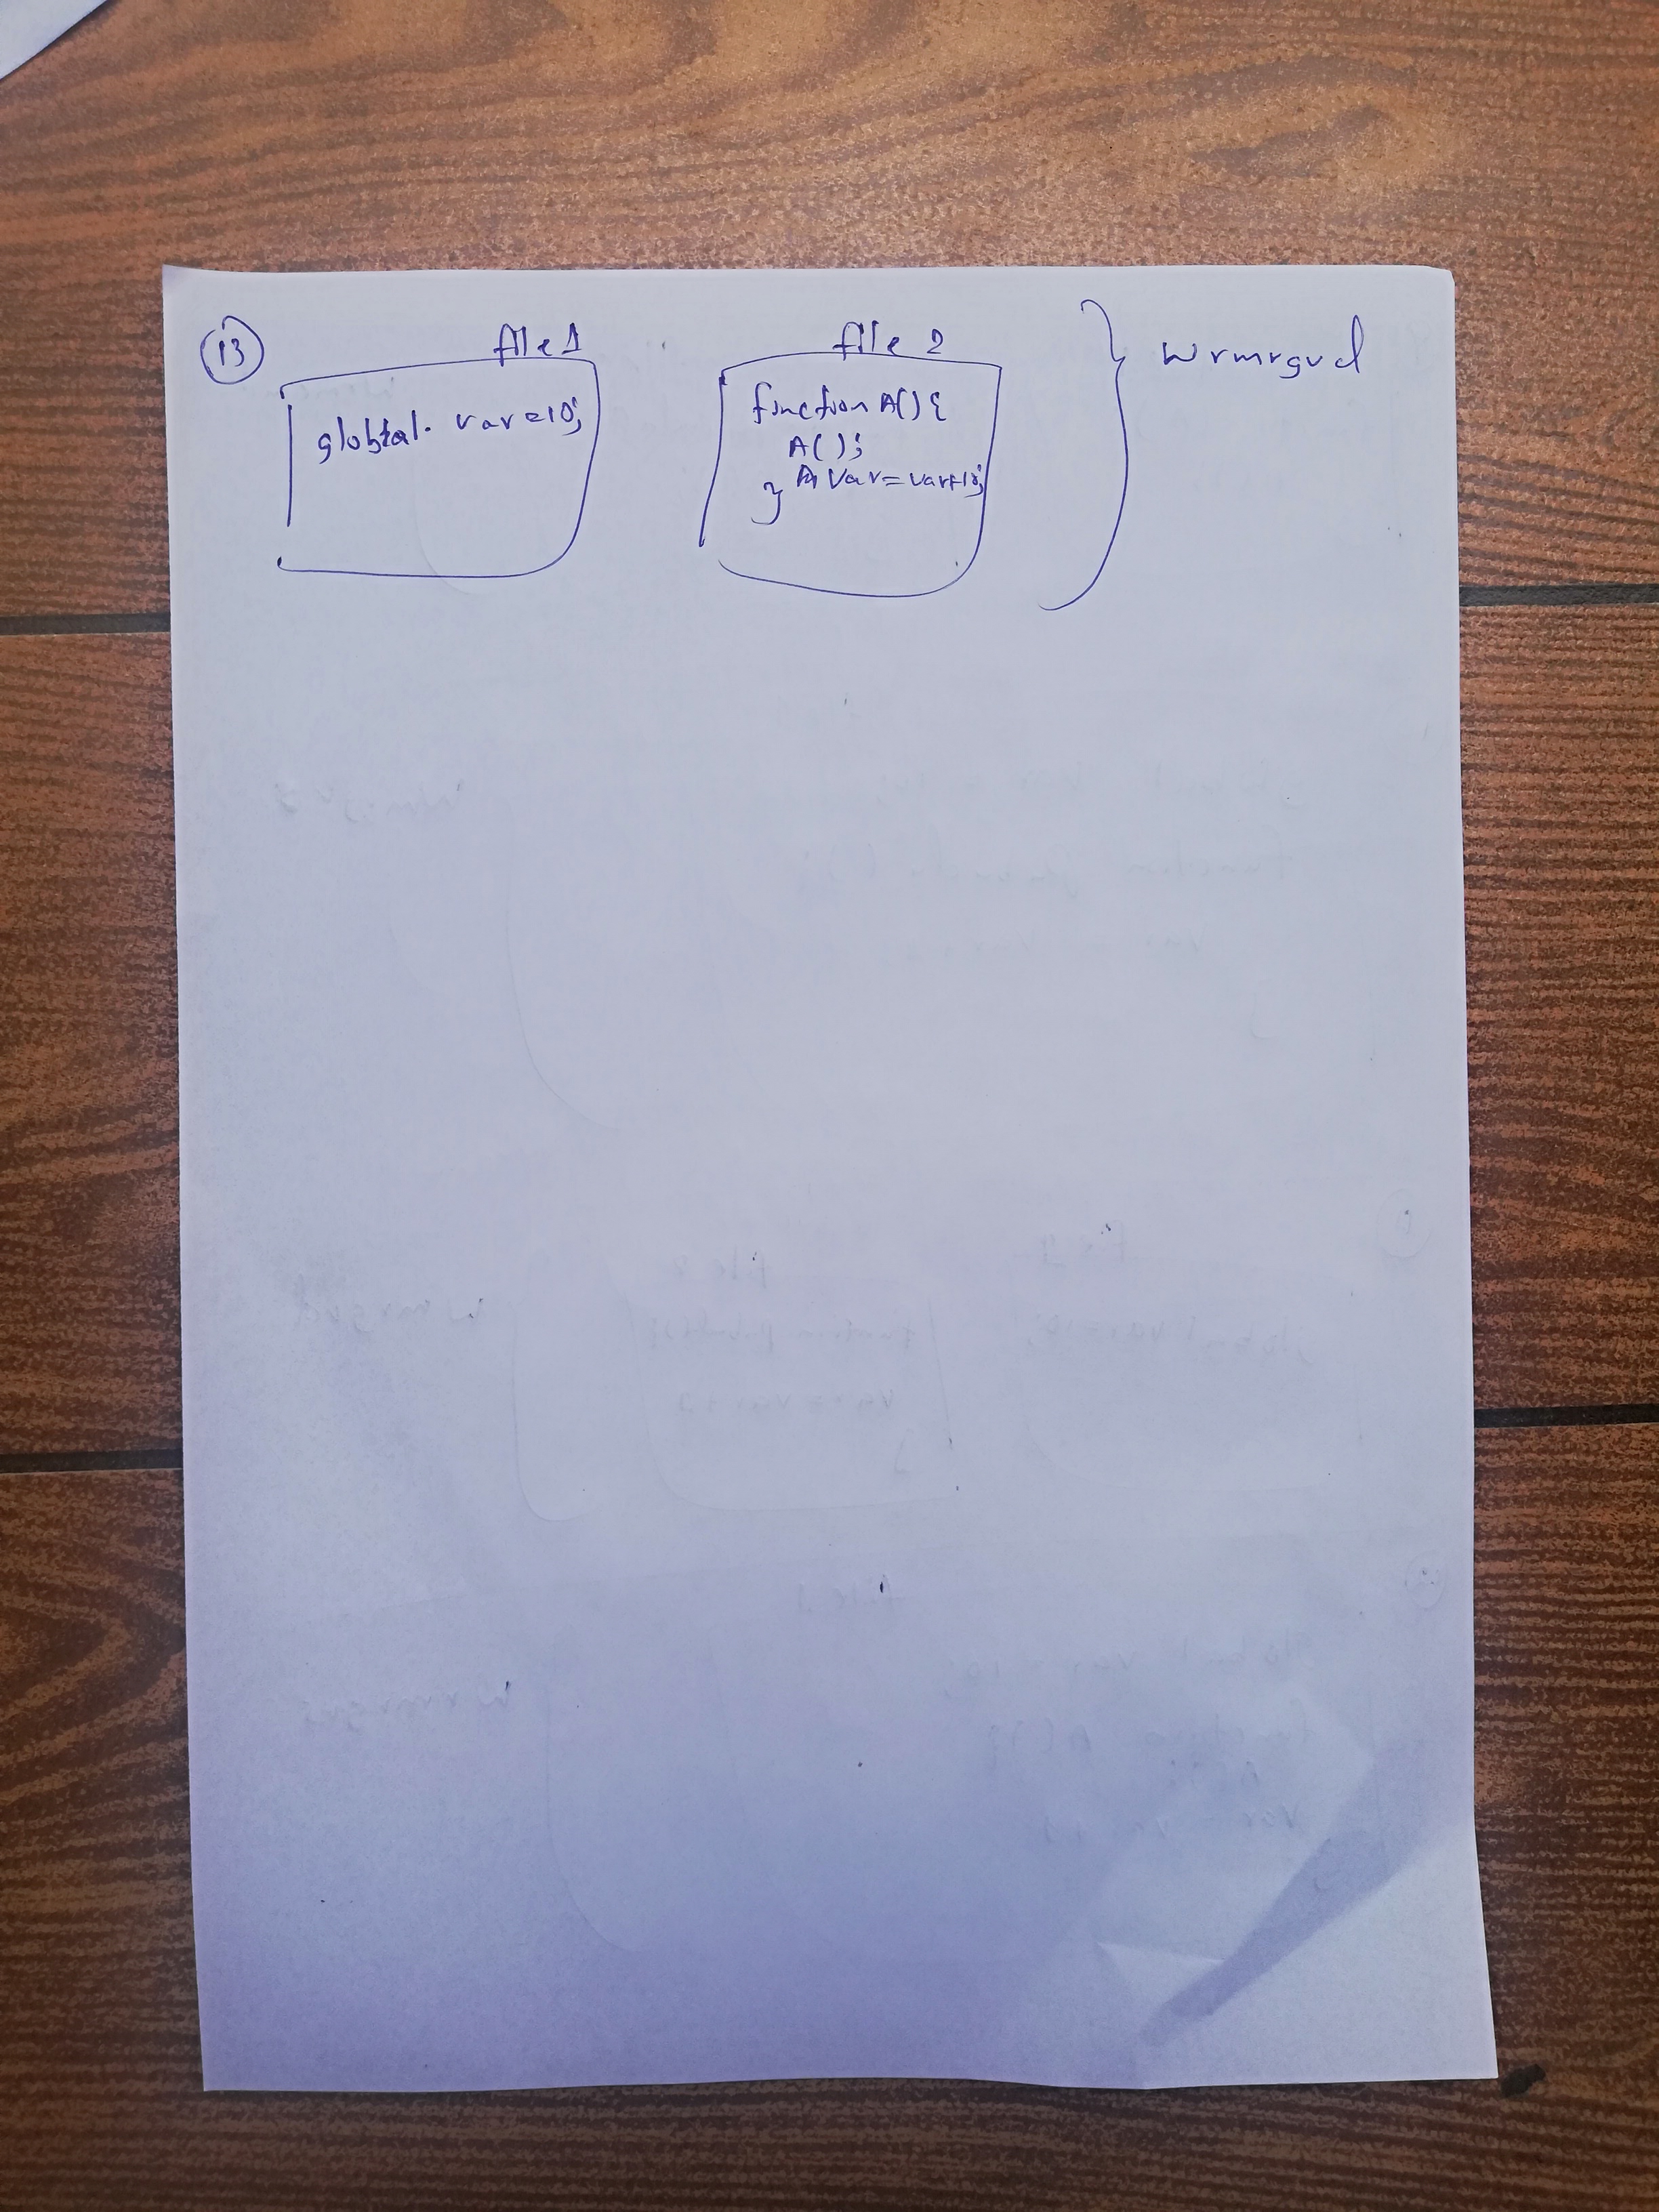 13
file 1
global. var=10;
file 2
function A() {
A();
var = var+10;
}
} wrmrgvd